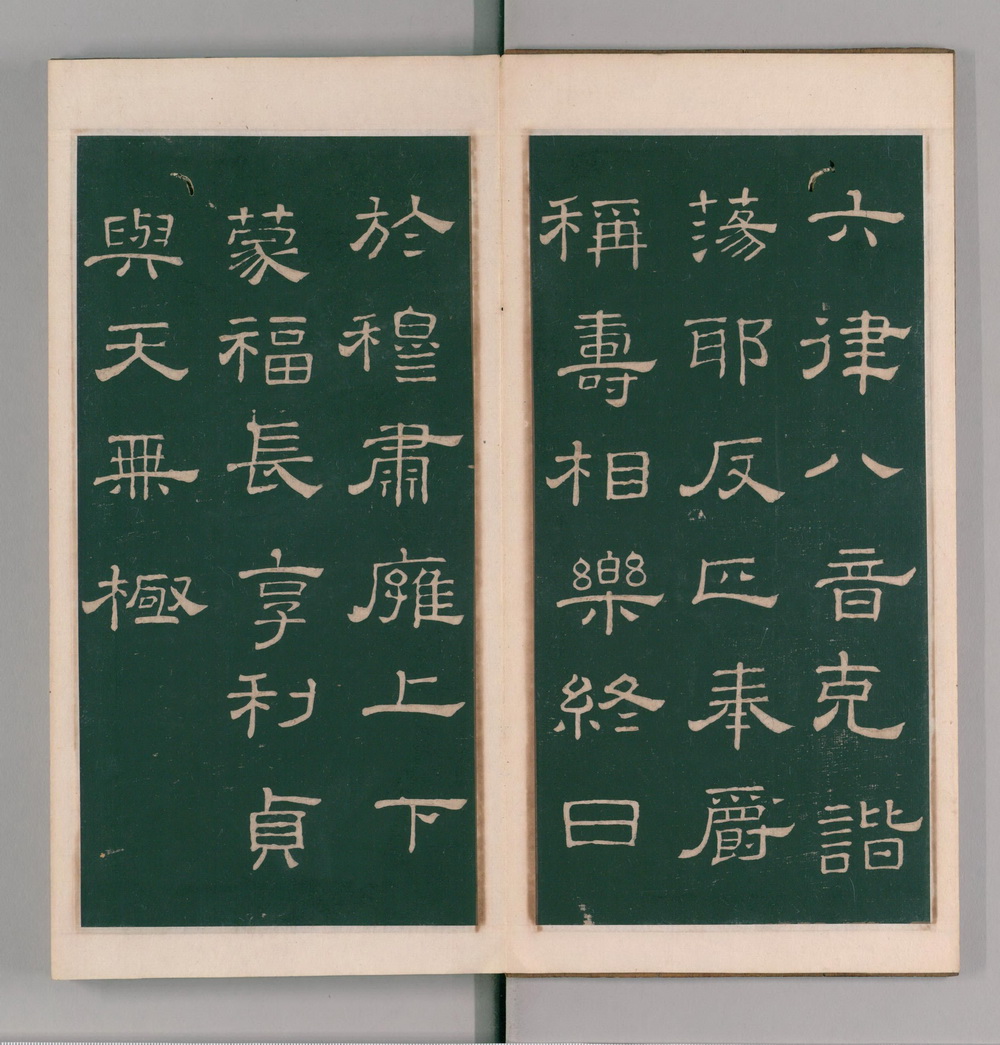 六律八音克諧
蕩耶反匹奉爵
稱壽相樂終日
於穆肅廱上下
蒙福長享利貞
與天無極